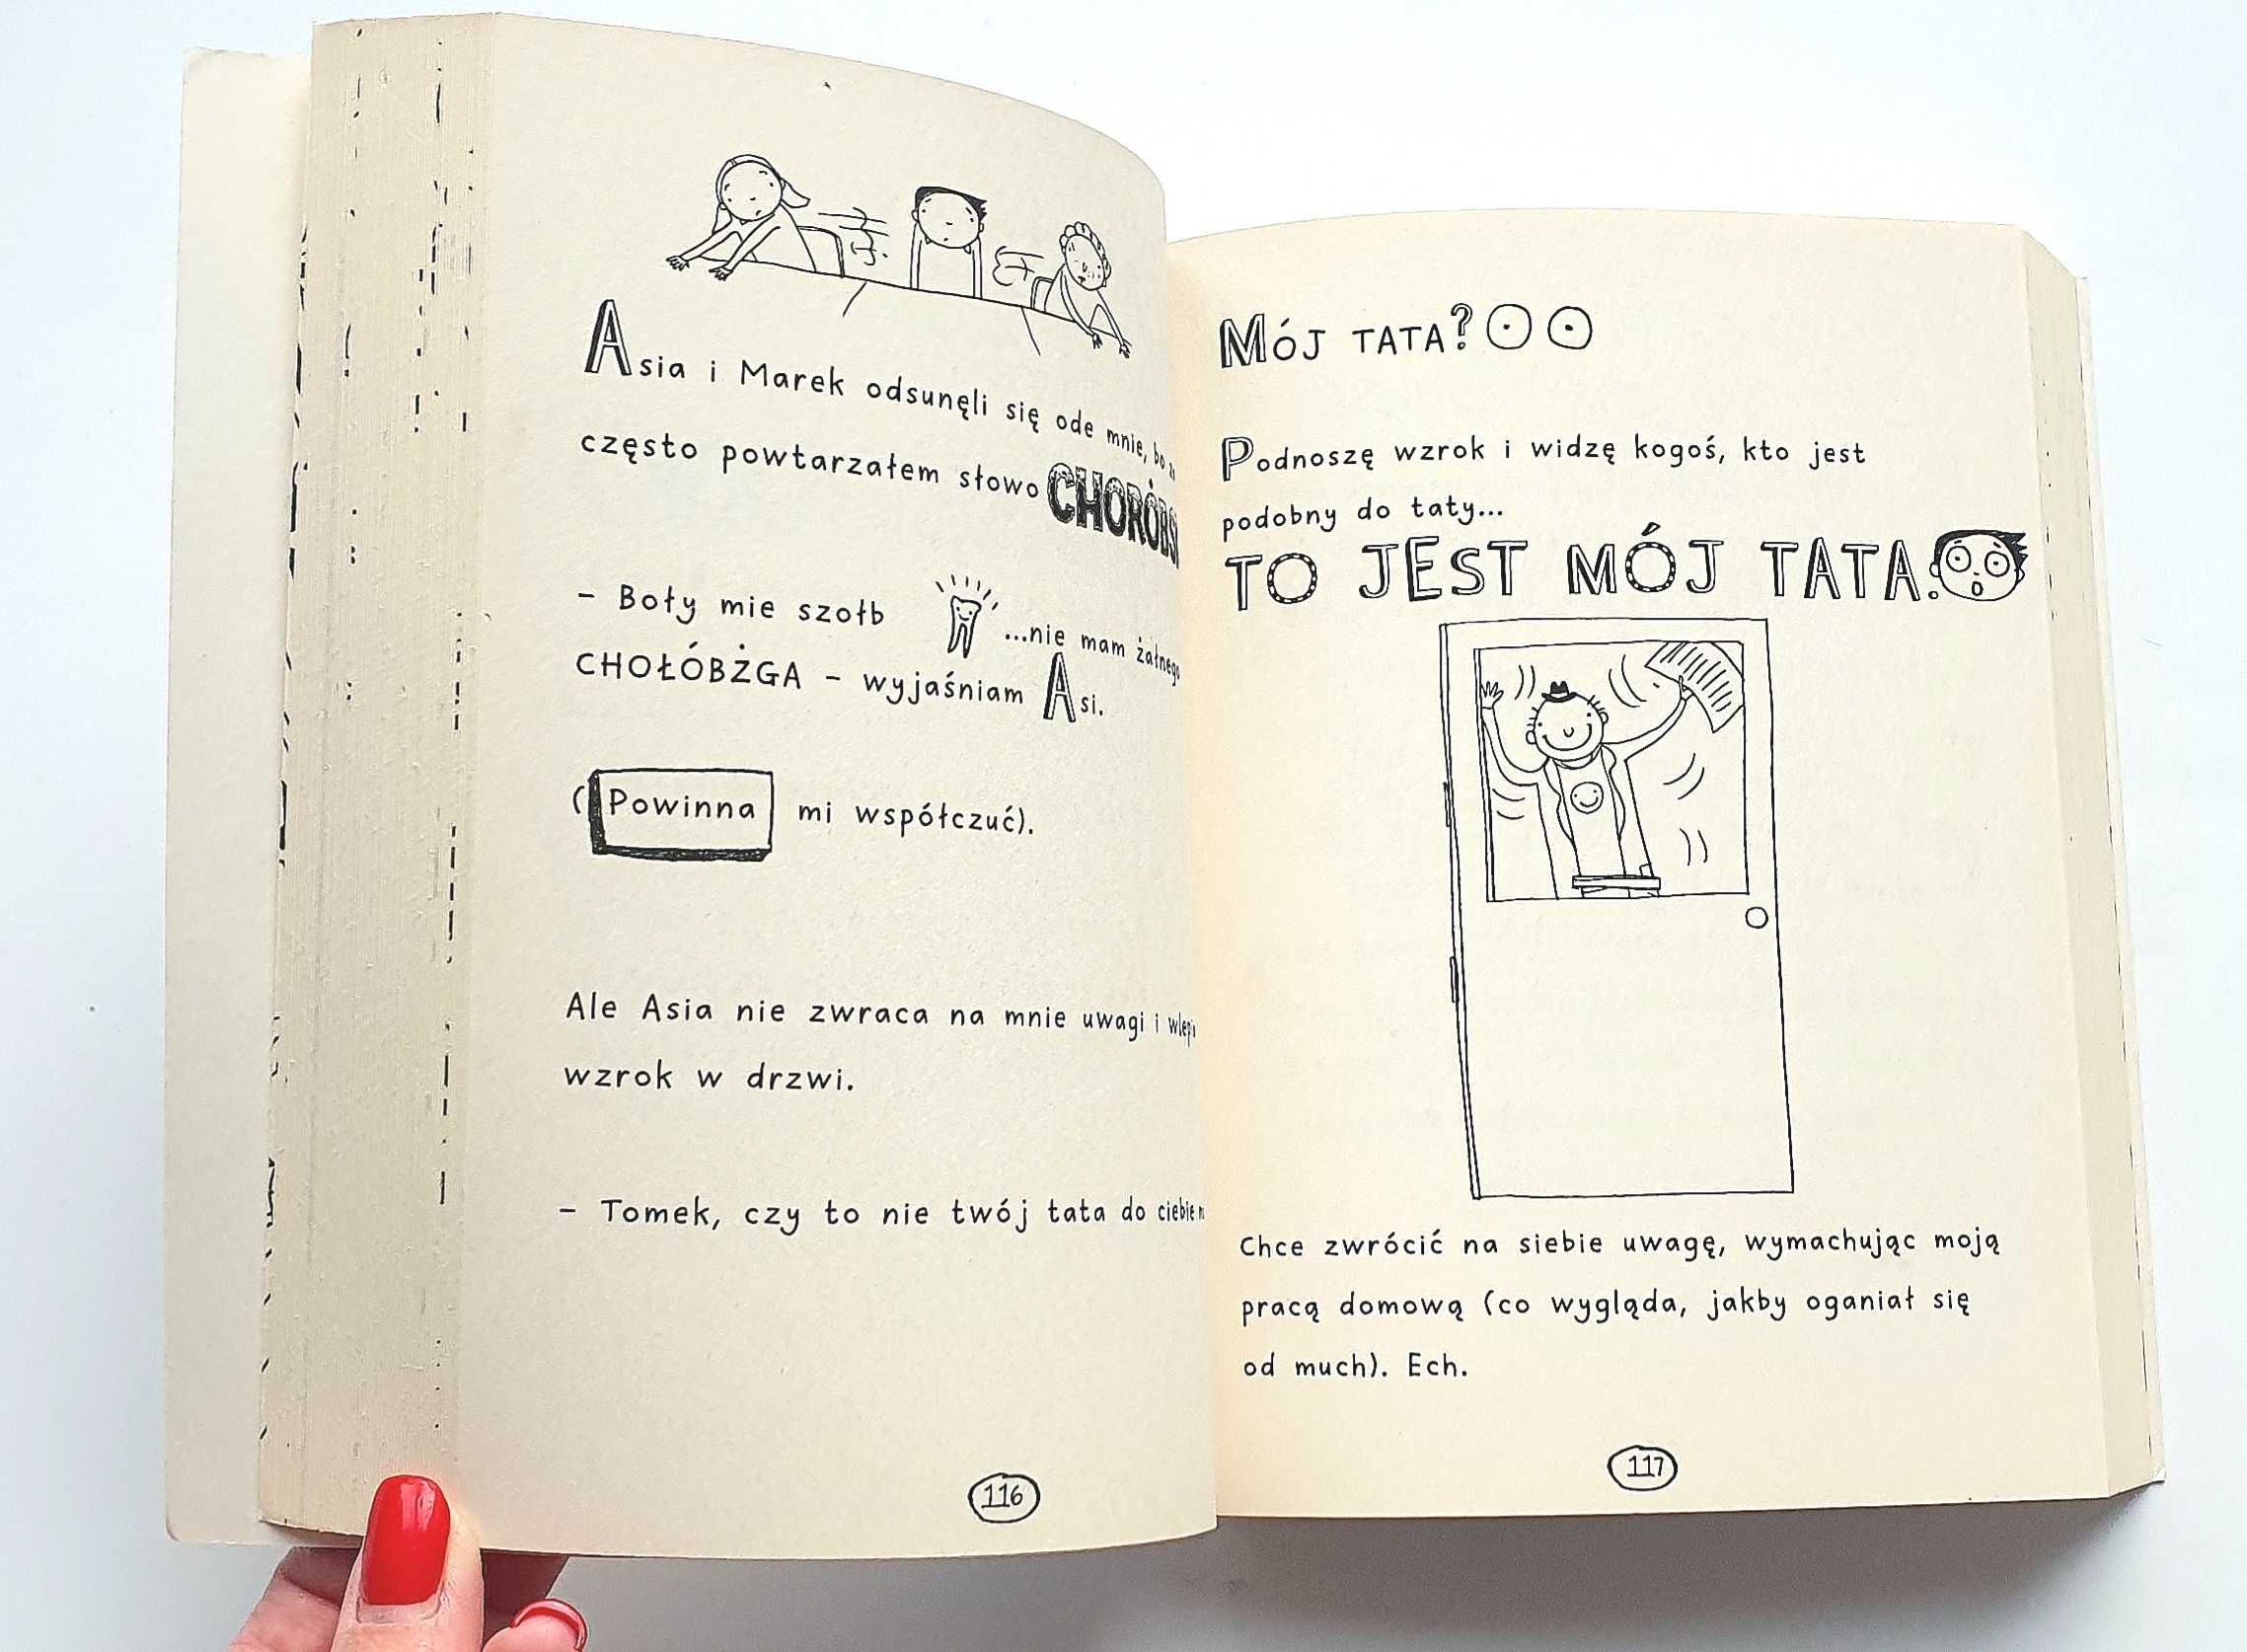 Asia i Marek odsunęli się ode mnie, bo
często powtarzałem słowo
– Boły mie szołb ...nie mam żałnego
CHOŁÓBŻGA – wyjaśniam Asi.
(Powinna mi współczuć).
Ale Asia nie zwraca na mnie uwagi i
wzrok w drzwi.
– Tomek, czy to nie twój tata do ciebie
116
MÓJ TATA?
Podnoszę wzrok i widzę kogoś, kto jest
podobny do taty...
TO JEST MÓJ TATA.
Chce zwrócić na siebie uwagę, wymachując moją
pracą domową (co wygląda, jakby oganiał się
od much). Ech.
117